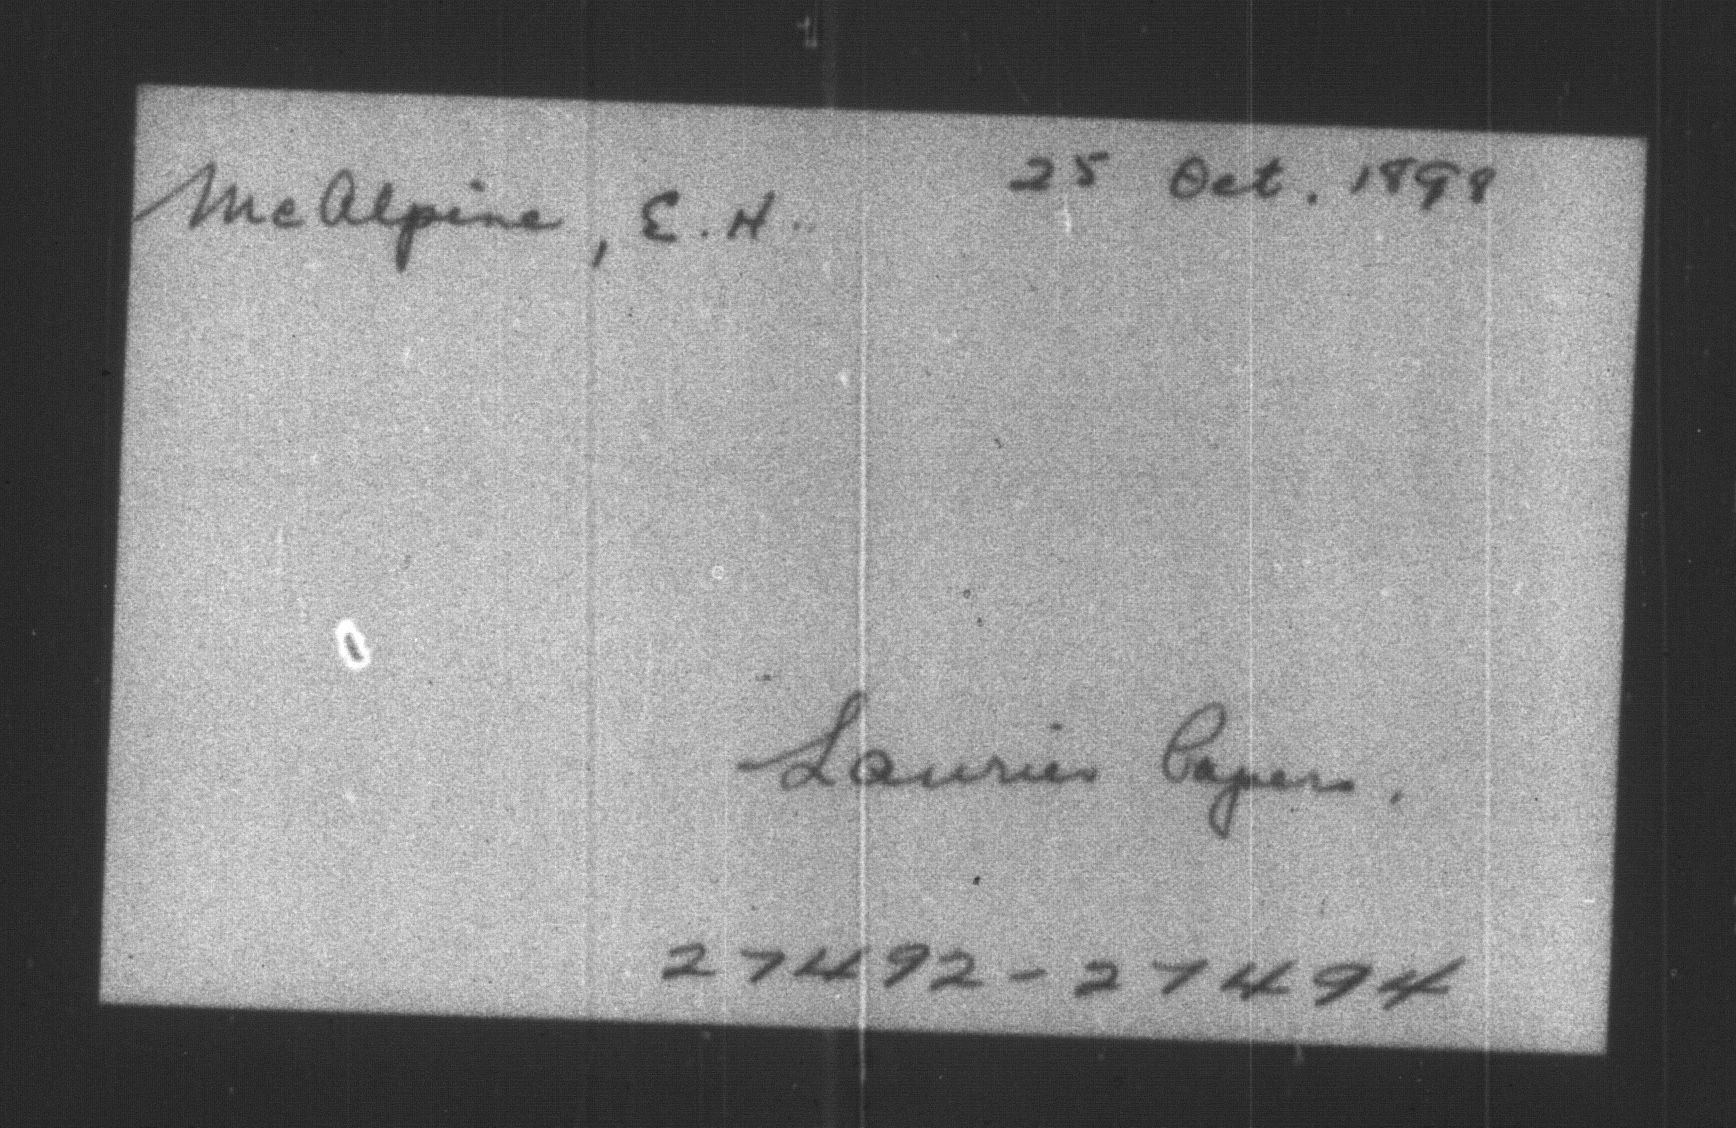 McAlpine, E. H. 25 Oct. 1898
Laurier Papers.
27492-27494